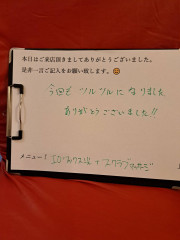 本日はご来店頂きましてありがとうございました。
是非一言ご記入をお願い致します。😊
今回も ツルツルになりました
ありがとうございました!!
メニュー: